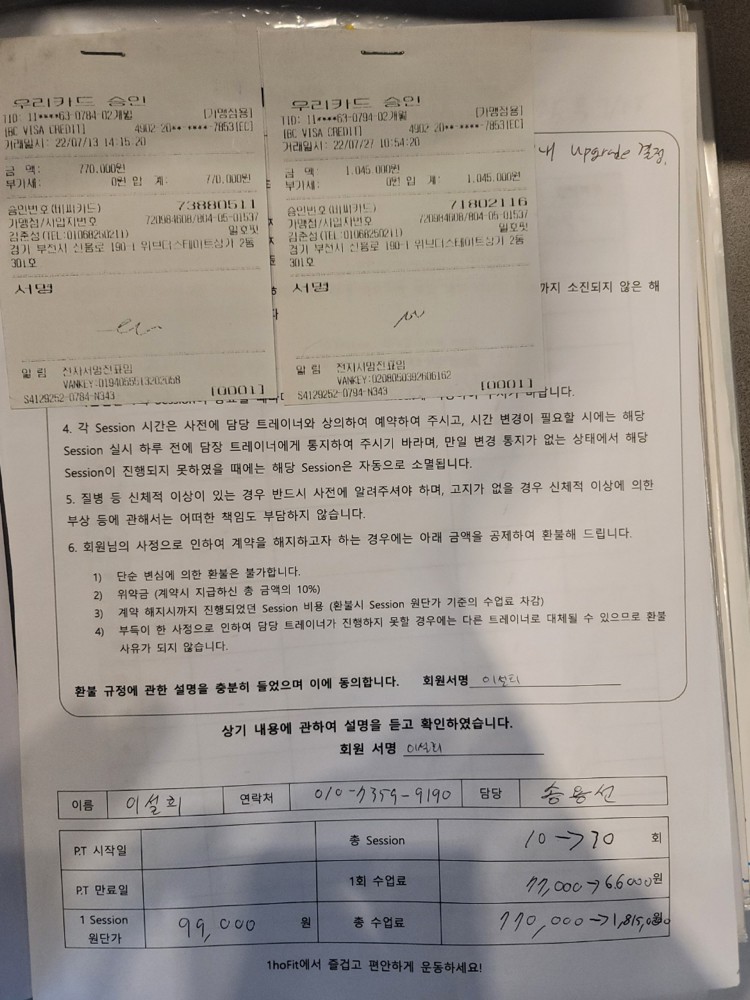 우리카드 승인
TID: 11****63-0784-02개월 [가맹점용]
[BC VISA CREDIT] 4902-20**-****-7853[EC]
거래일시: 22/07/13 14:15:20
금 액: 770,000원
부가세: 0원 합 계: 770,000원
승인번호(비씨카드) 73880511
가맹점/사업자번호 720984608/804-05-01537
김준성(TEL:01068250211) 일호핏
경기 부천시 신흥로 190-1 위브더스테이트상가 2동
301호
서명
알 림 전자서명전표임
VANKEY:0194055513202058
S4129252-0784-N343 [0001]
우리카드 승인
TID: 11****63-0794-02개월 [가맹점용]
[BC VISA CREDIT] 4902-20**-****-7853[EC]
거래일시: 22/07/27 10:54:20
금 액: 1,045,000원
부가세: 0원 합 계: 1,045,000원
승인번호(비씨카드) 71802116
가맹점/사업자번호 720984608/804-05-01537
김준성(TEL:01068250211) 일호핏
경기 부천시 신흥로 190-1 위브더스테이트상가 2동
301호
서명
알 림 전자서명전표임
VANKEY:0208050382606162
S4129252-0794-N343 [0001]
내 upgrade 결정
까지 소진되지 않은 해
4. 각 Session 시간은 사전에 담당 트레이너와 상의하여 예약하여 주시고, 시간 변경이 필요할 시에는 해당
Session 실시 하루 전에 담장 트레이너에게 통지하여 주시기 바라며, 만일 변경 통지가 없는 상태에서 해당
Session이 진행되지 못하였을 때에는 해당 Session은 자동으로 소멸됩니다.
5. 질병 등 신체적 이상이 있는 경우 반드시 사전에 알려주셔야 하며, 고지가 없을 경우 신체적 이상에 의한
부상 등에 관해서는 어떠한 책임도 부담하지 않습니다.
6. 회원님의 사정으로 인하여 계약을 해지하고자 하는 경우에는 아래 금액을 공제하여 환불해 드립니다.
1) 단순 변심에 의한 환불은 불가합니다.
2) 위약금 (계약시 지급하신 총 금액의 10%)
3) 계약 해지시까지 진행되었던 Session 비용 (환불시 Session 원단가 기준의 수업료 차감)
4) 부득이 한 사정으로 인하여 담당 트레이너가 진행하지 못할 경우에는 다른 트레이너로 대체될 수 있으므로 환불
사유가 되지 않습니다.
환불 규정에 관한 설명을 충분히 들었으며 이에 동의합니다. 회원서명 이설희
상기 내용에 관하여 설명을 듣고 확인하였습니다.
회원 서명 이설희
이름 이설희 연락처 010-7359-9190 담당 송용선
P.T 시작일 총 Session 10→30 회
P.T 만료일 1회 수업료 77,000→66000원
1 Session 99,000 원 총 수업료 770,000→1,815,000원
원단가
1hoFit에서 즐겁고 편안하게 운동하세요!